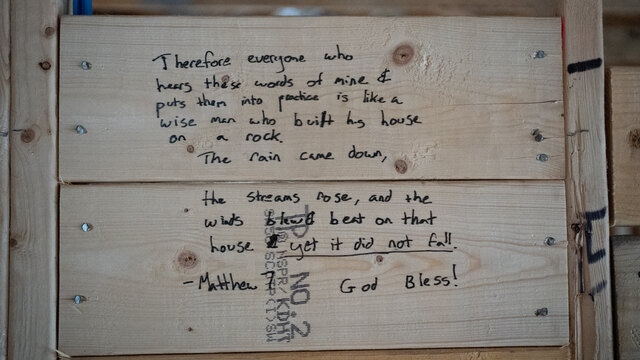 Therefore everyone who
hears these words of mine &
puts them into practice is like a
wise man who built his house
on a rock.
The rain came down,
the streams rose, and the
winds blew & beat on that
house & yet it did not fall.
- Matthew 7 God Bless!
TP NO.2
KDHT